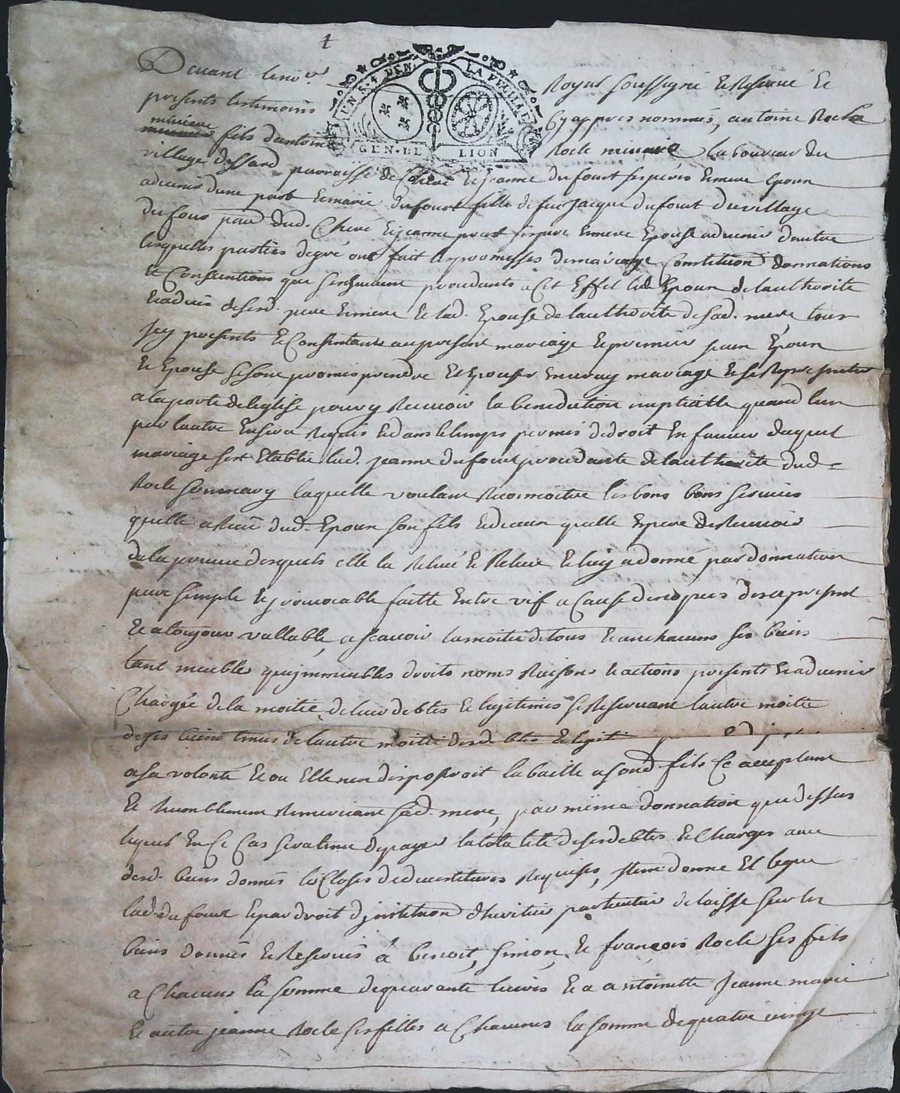 1
Devant le no.re Royal soussigné et Reservé et
UN S. 4 DEN. LA FEUILLE
presents les temoins cy appres nommés, antoine Rocle
GEN. DE LION
mineur fils d'antoine Rocle mineur laboureur du
village parroisse de Cheré et jeanne du fourt ses pere et mere Epoux
advenir d'une part et marie du fourt fille de feu jacque du fourt du village
du four parr. dud. Cheré et jeanne ses pere et mere Epouse advenir d'autre
lesquelles parties de gré ont fait les promesses de mariage Constitution donnations
et Conventions que s'ensuivent procedants a Cet Effet led. Epoux de l'authorité
et advis desd. pere et mere et lad. Epouse de l'authorité de sad. mere tous
icy presents et Consentants au present mariage et premier Epoux
et Epouse se sont promis prendre et Epouser en vray mariage et se Representer
a la porte de l'eglise pour y Recevoir la benediction nuptialle quand l'un
par l'autre en sera Requis et dans le temps permis de droit En faveur duquel
mariage s'est Etablie lad. jeanne du fourt procedante de l'authorité dud.
Rocle son mary laquelle voulant Reconnoitre les bons bons services
qu'elle a Receu dud. Epoux son fils et de ceux qu'elle Espere de Recevoir
de la preuve desquels elle la Relevé et Releve et luy a donné par donnation
pure simple et jrrevocable faitte Entre vif a Cause de nopces des a present
et a toujour vallable, a scavoir la moitié de tous et un chacuns ses biens
tant meubles qu'jmmeubles droits noms Raisons et actions presents et advenir
Chargée de la moitié de leur debtes et legitimes se Reservant l'autre moitié
de ses biens tenus de l'autre moitié desd. debtes et legit.
a sa volonté et ou Elle n'en disposeroit la baille a sond. fils Ce acceptant
et humblement Remerciant sad. mere, par meme donnation que dessus
lequel En Ce Cas sera tenu de payer la totalité desdes debtes et Charges avec
desd. biens donnés les Closes de devestitures Requises, item donne et legue
lad. du fourt Et par droit d'jnstitution d'heritier particulier delaisse sur les
biens donnés et Reservés à benoit, Simon, et françois Rocle ses fils
a Chacuns la somme de quarante livres et a antoinette Jeanne marie
et autre jeanne Rocle ses filles a Chacunes la somme de quatre vingt